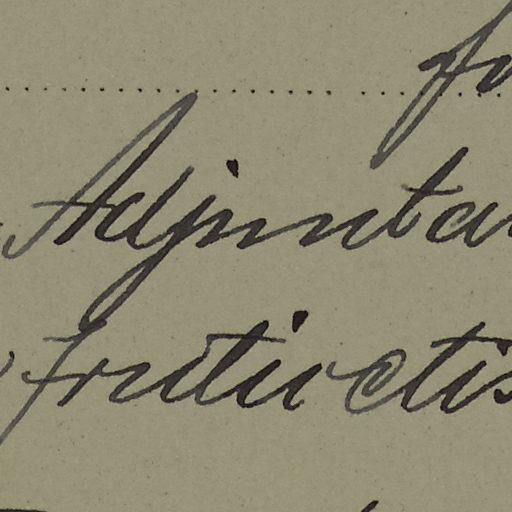 fo
Adjunta
fruticetis